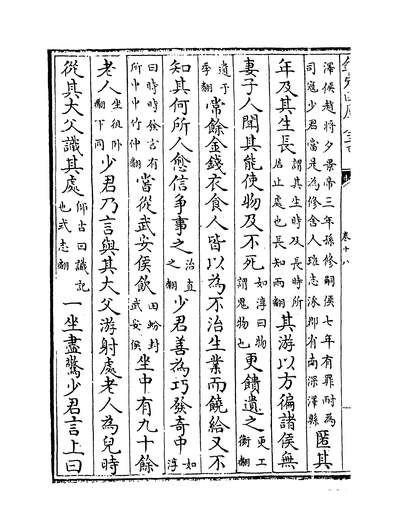 澤侯趙將夕景帝三年孫修嗣侯七年有罪耐為司寇少君當是為修舍人班志涿郡有南深澤縣匿其
年及其生長謂其生時及長時所居止處也長知兩翻其游以方徧諸侯無
妻子人聞其能使物及不死如淳曰物謂鬼物也更饋遺之更工衡翻
遺于季翻常餘金錢衣食人皆以為不治生業而饒給又不
知其何所人愈信爭事之治直之翻少君善為巧發奇中如淳
曰時時發言有所中中竹仲翻嘗從武安侯飲田蚡封武安侯坐中有九十餘
老人坐徂卧翻下同少君乃言與其大父游射處老人為兒時
從其大父識其處師古曰識記也式志翻一坐盡驚少君言上曰
卷十八